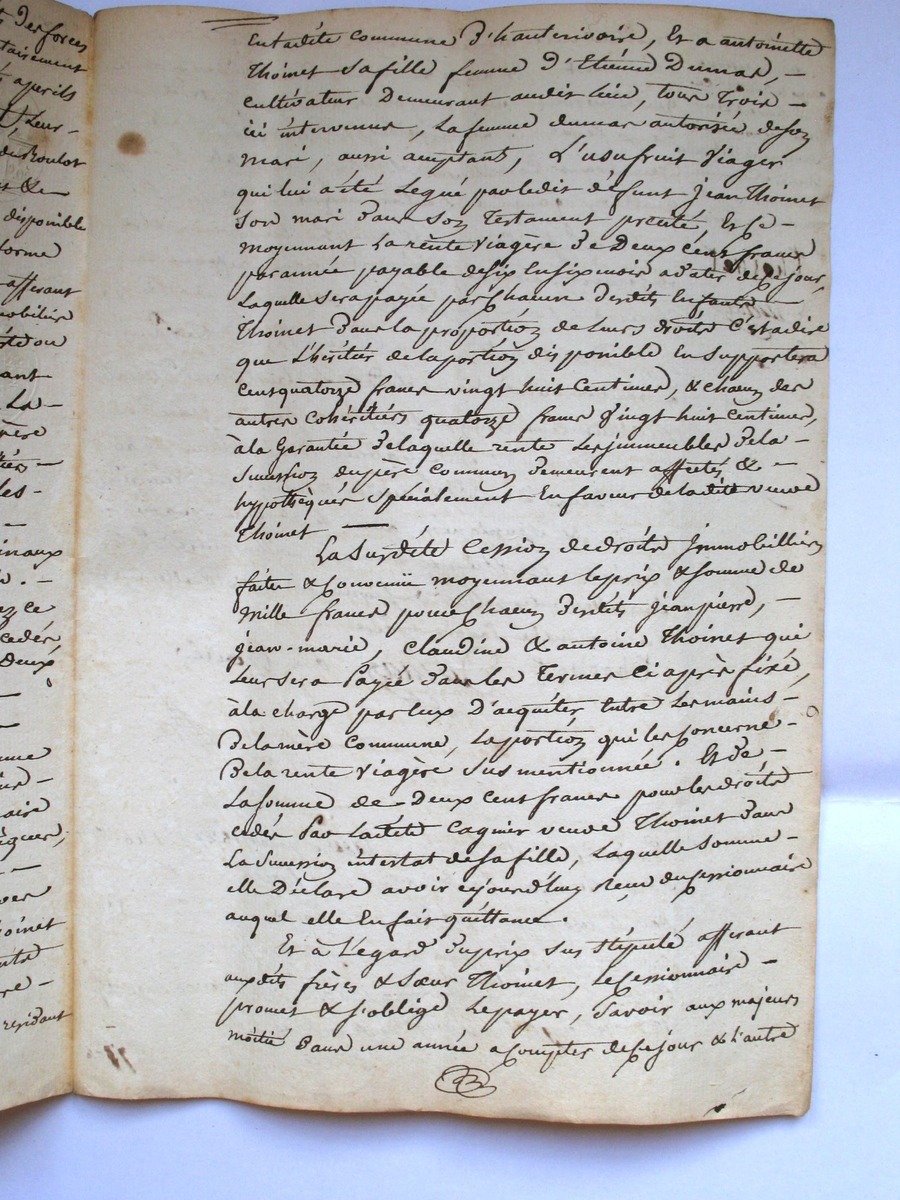 des forces
aperils
Leur -
du Boulot
& de
disponible
forme
afferant
mobiliére
ou
ant
La -
père
les -
inaux
ce
cedés,
Deux
aire
oinet
re -
residant
En ladite Commune D'hauterivoire, Et a antoinette
Thoinet sa fille femme D'Etiénne Dumas, -
Cultivateur Demeurant audit lieu, tous Trois -
ici intervenus, La femme dumas autorisée de son
mari, aussi acceptant, L'usufruit Viager
qui lui a été Legué par ledit défunt Jean Thoinet
Son mari Dans Son Testament precité, Et Ce -
moyennant La rente Viagère De Deux Cent francs
par année payable de six En six mois a dater de ce jour,
Laquelle sera payée par Chacun Desdits Enfants -
Thoinet Dans la proportion de leurs droits C'est adire
que L'héritier de la portion disponible En Supportera
Cent quatorze francs vingt huit Centimes, & chacun des
autres Cohéritiers quatorze francs Vingt huit Centimes,
à la Garantie De laquelle rente Les immeubles De la -
Succession du père Commun Demeurent affectés & -
hypothèqués Spécialement En faveur de ladite veuve
Thoinet
La Susdite Cession de droits Immobilliers
faite & Convenüe moyennant le prix & Somme de
Mille francs pour Chacun Desdits jean pierre, -
jean-marie, Claudine & antoine Thoinet qui
Leur sera Payée Dans les Termes Ci après fixé,
à la charge par Eux D'acquiter Entre Les mains -
De la mère Commune, La portion qui les Concerne -
De la rente Viagère Sus mentionnée. Et De -
La Somme de Deux Cent francs pour les droits
cedés Par Ladite Cagnier veuve Thoinet Dans
La Succession intestat de sa fille, Laquelle Somme -
elle Déclare avoir cejourd'huy Reçu du Cessionnaire
auquel elle En fait quittance.
Et à L'égard Du prix Sus Stipulé afferant
auxdits frères & Sœur Thoinet, Le Cessionnaire -
promet & s'oblige Le payer, Savoir aux majeurs
moitié Dans une année a Compter de Ce jour & L'autre